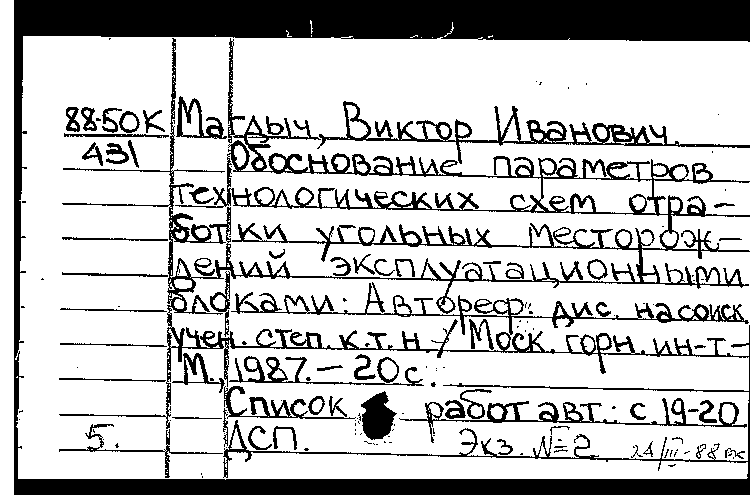 88-50К Магдыч, Виктор Иванович.
431 Обоснование параметров
технологических схем отра-
ботки угольных месторож-
дений эксплуатационными
блоками: Автореф. дис. на соиск.
учен. степ. к.т.н. / Моск. горн. ин-т.-
М., 1987. - 20 с.
Список работ авт.: с. 19-20
5. ДСП. Экз. №2 24/III-88